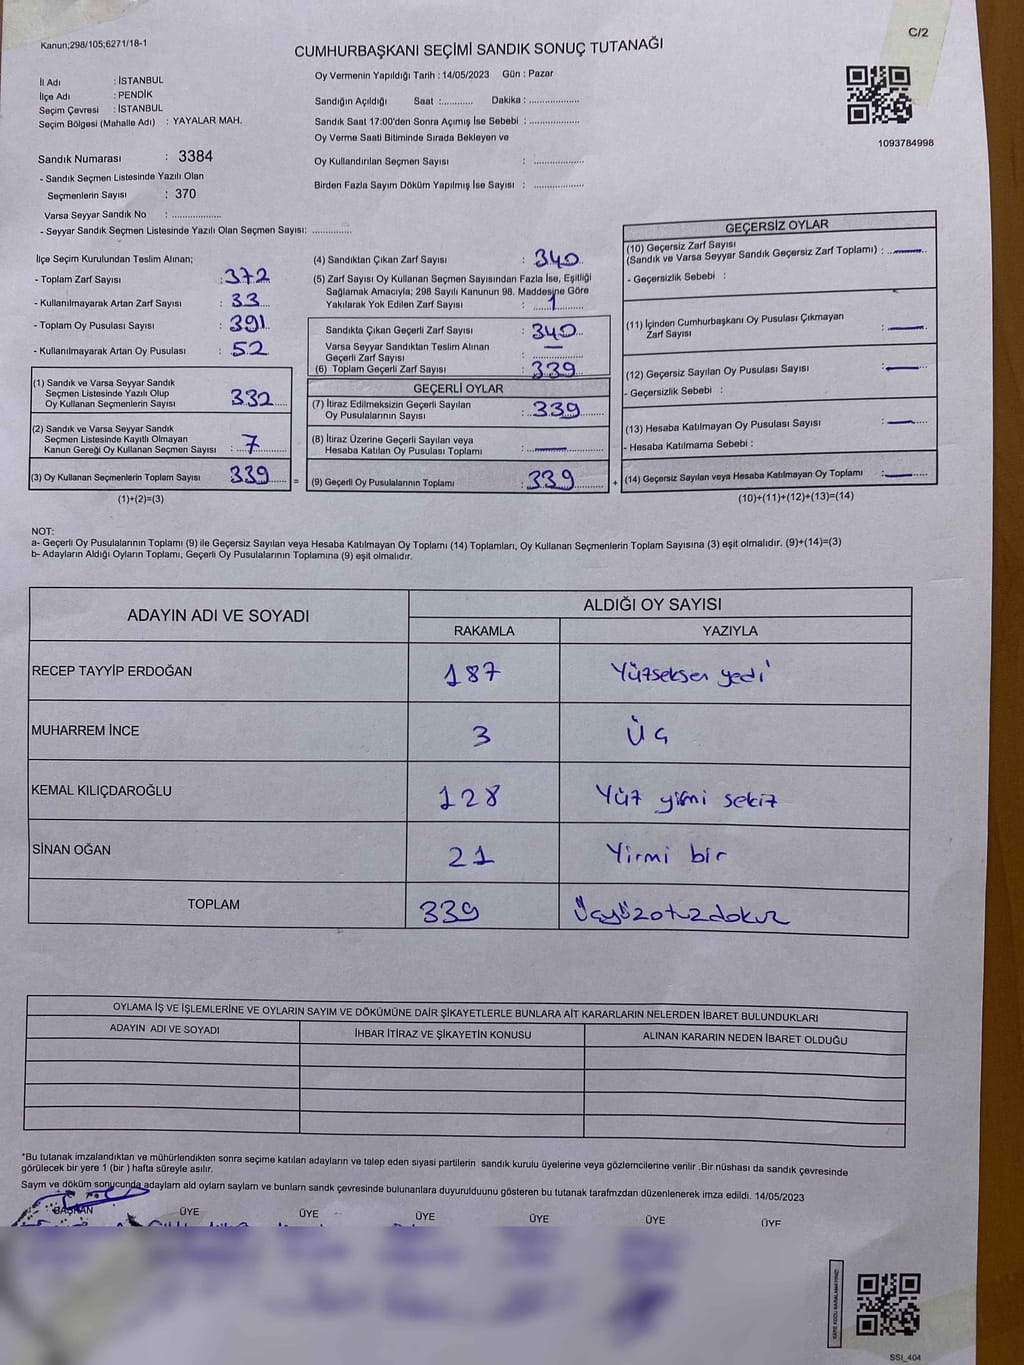 Kanun;298/105;6271/18-1
C/2
CUMHURBAŞKANI SEÇİMİ SANDIK SONUÇ TUTANAĞI
1093784998
İl Adı : İSTANBUL
İlçe Adı : PENDİK
Seçim Çevresi : İSTANBUL
Seçim Bölgesi (Mahalle Adı) : YAYALAR MAH.
Sandık Numarası : 3384
- Sandık Seçmen Listesinde Yazılı Olan
Seçmenlerin Sayısı : 370
Varsa Seyyar Sandık No : ....................
- Seyyar Sandık Seçmen Listesinde Yazılı Olan Seçmen Sayısı: ................
Oy Vermenin Yapıldığı Tarih : 14/05/2023 Gün : Pazar
Sandığın Açıldığı Saat :............ Dakika : ...................
Sandık Saat 17:00'den Sonra Açımış İse Sebebi : ...................
Oy Verme Saati Bitiminde Sırada Bekleyen ve
Oy Kullandırılan Seçmen Sayısı : ...................
Birden Fazla Sayım Döküm Yapılmış İse Sayısı : ...................
İlçe Seçim Kurulundan Teslim Alınan;
- Toplam Zarf Sayısı : 372
- Kullanılmayarak Artan Zarf Sayısı : 33
- Toplam Oy Pusulası Sayısı : 391
- Kullanılmayarak Artan Oy Pusulası : 52
(1) Sandık ve Varsa Seyyar Sandık
Seçmen Listesinde Yazılı Olup
Oy Kullanan Seçmenlerin Sayısı 332
(2) Sandık ve Varsa Seyyar Sandık
Seçmen Listesinde Kayıtlı Olmayan
Kanun Gereği Oy Kullanan Seçmen Sayısı : 7
(3) Oy Kullanan Seçmenlerin Toplam Sayısı 339 =
(1)+(2)=(3)
(4) Sandıktan Çıkan Zarf Sayısı : 340
(5) Zarf Sayısı Oy Kullanan Seçmen Sayısından Fazla İse, Eşitliği
Sağlamak Amacıyla; 298 Sayılı Kanunun 98. Maddesine Göre
Yakılarak Yok Edilen Zarf Sayısı : 1
Sandıkta Çıkan Geçerli Zarf Sayısı : 340
Varsa Seyyar Sandıktan Teslim Alınan
Geçerli Zarf Sayısı : —
(6) Toplam Geçerli Zarf Sayısı : 339
GEÇERLİ OYLAR
(7) İtiraz Edilmeksizin Geçerli Sayılan
Oy Pusulalarının Sayısı : 339
(8) İtiraz Üzerine Geçerli Sayılan veya
Hesaba Katılan Oy Pusulası Toplamı : —
(9) Geçerli Oy Pusulalarının Toplamı : 339 +
GEÇERSİZ OYLAR
(10) Geçersiz Zarf Sayısı
(Sandık ve Varsa Seyyar Sandık Geçersiz Zarf Toplamı) : —
- Geçersizlik Sebebi :
(11) İçinden Cumhurbaşkanı Oy Pusulası Çıkmayan
Zarf Sayısı : —
(12) Geçersiz Sayılan Oy Pusulası Sayısı : —
- Geçersizlik Sebebi :
(13) Hesaba Katılmayan Oy Pusulası Sayısı : —
- Hesaba Katılmama Sebebi :
(14) Geçersiz Sayılan veya Hesaba Katılmayan Oy Toplamı : —
(10)+(11)+(12)+(13)=(14)
NOT:
a- Geçerli Oy Pusulalarının Toplamı (9) ile Geçersiz Sayılan veya Hesaba Katılmayan Oy Toplamı (14) Toplamları, Oy Kullanan Seçmenlerin Toplam Sayısına (3) eşit olmalıdır. (9)+(14)=(3)
b- Adayların Aldığı Oyların Toplamı, Geçerli Oy Pusulalarının Toplamına (9) eşit olmalıdır.
ADAYIN ADI VE SOYADI ALDIĞI OY SAYISI
RAKAMLA YAZIYLA
RECEP TAYYİP ERDOĞAN 187 Yüzseksen yedi
MUHARREM İNCE 3 Üç
KEMAL KILIÇDAROĞLU 128 Yüz yirmi sekiz
SİNAN OĞAN 21 Yirmi bir
TOPLAM 339 Üçyüzotuzdokuz
OYLAMA İŞ VE İŞLEMLERİNE VE OYLARIN SAYIM VE DÖKÜMÜNE DAİR ŞİKAYETLERLE BUNLARA AİT KARARLARIN NELERDEN İBARET BULUNDUKLARI
ADAYIN ADI VE SOYADI İHBAR İTİRAZ VE ŞİKAYETİN KONUSU ALINAN KARARIN NEDEN İBARET OLDUĞU
*Bu tutanak imzalandıktan ve mühürlendikten sonra seçime katılan adayların ve talep eden siyasi partilerin sandık kurulu üyelerine veya gözlemcilerine verilir .Bir nüshası da sandık çevresinde
görülecek bir yere 1 (bir ) hafta süreyle asılır.
Sayım ve döküm sonucunda adaylarn ald oylarn saylarn ve bunlarn sandk çevresinde bulunanlara duyurulduunu gösteren bu tutanak tarafmzdan düzenlenerek imza edildi. 14/05/2023
BAŞKAN ÜYE ÜYE ÜYE ÜYE ÜYE ÜYE
SSI_404